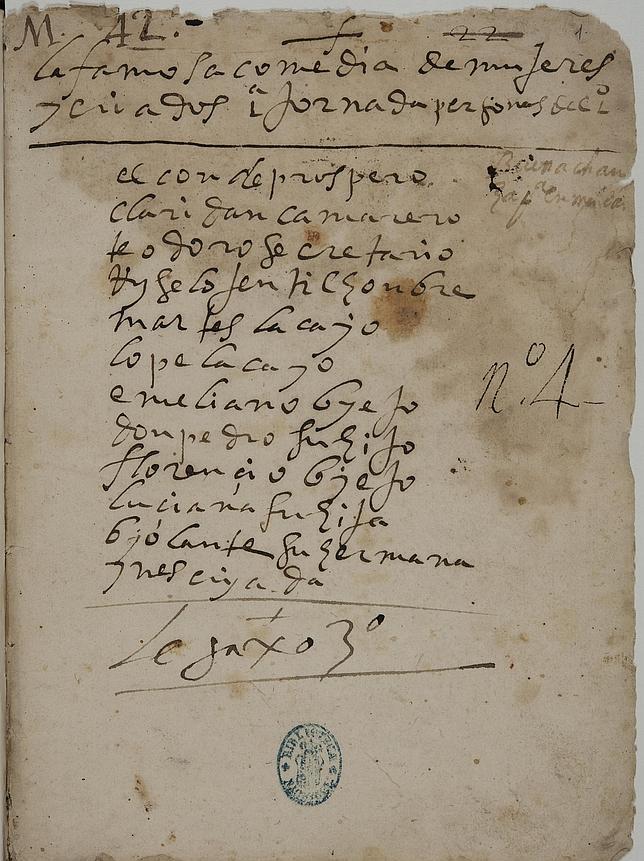 M. 42. 22 1
la famosa comedia de mujeres
y criados 1ª Jornada personas della
el conde prospero
claridan camarero
teodoro secretario
Ryselo jentilhonbre
martes lacayo
lope lacayo
emeliano byejo
don pedro su hijo
florencio byejo
luciana su hija
byolante su hermana
ynes criyada
nº. 4
Legaxo 3º
BIBLIOTECA NACIONAL